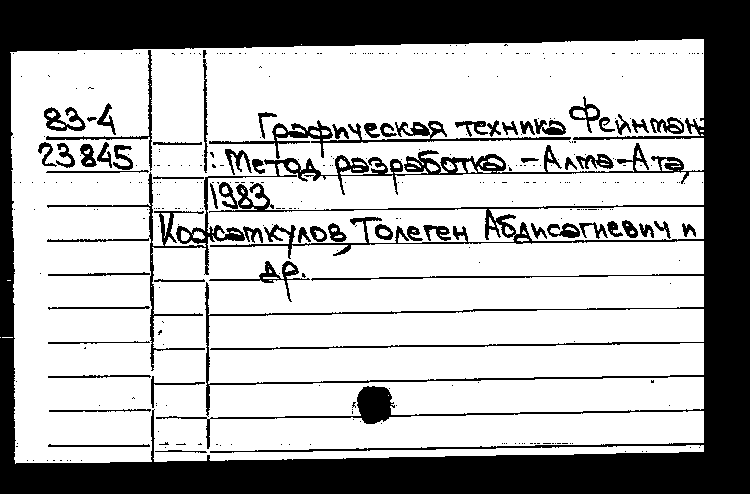 83-4
Графическая техника Фейнман
23845
: Метод. разработка. - Алма-Ата,
1983.
Кожаткулов, Толеген Абдисагиевич и
др.